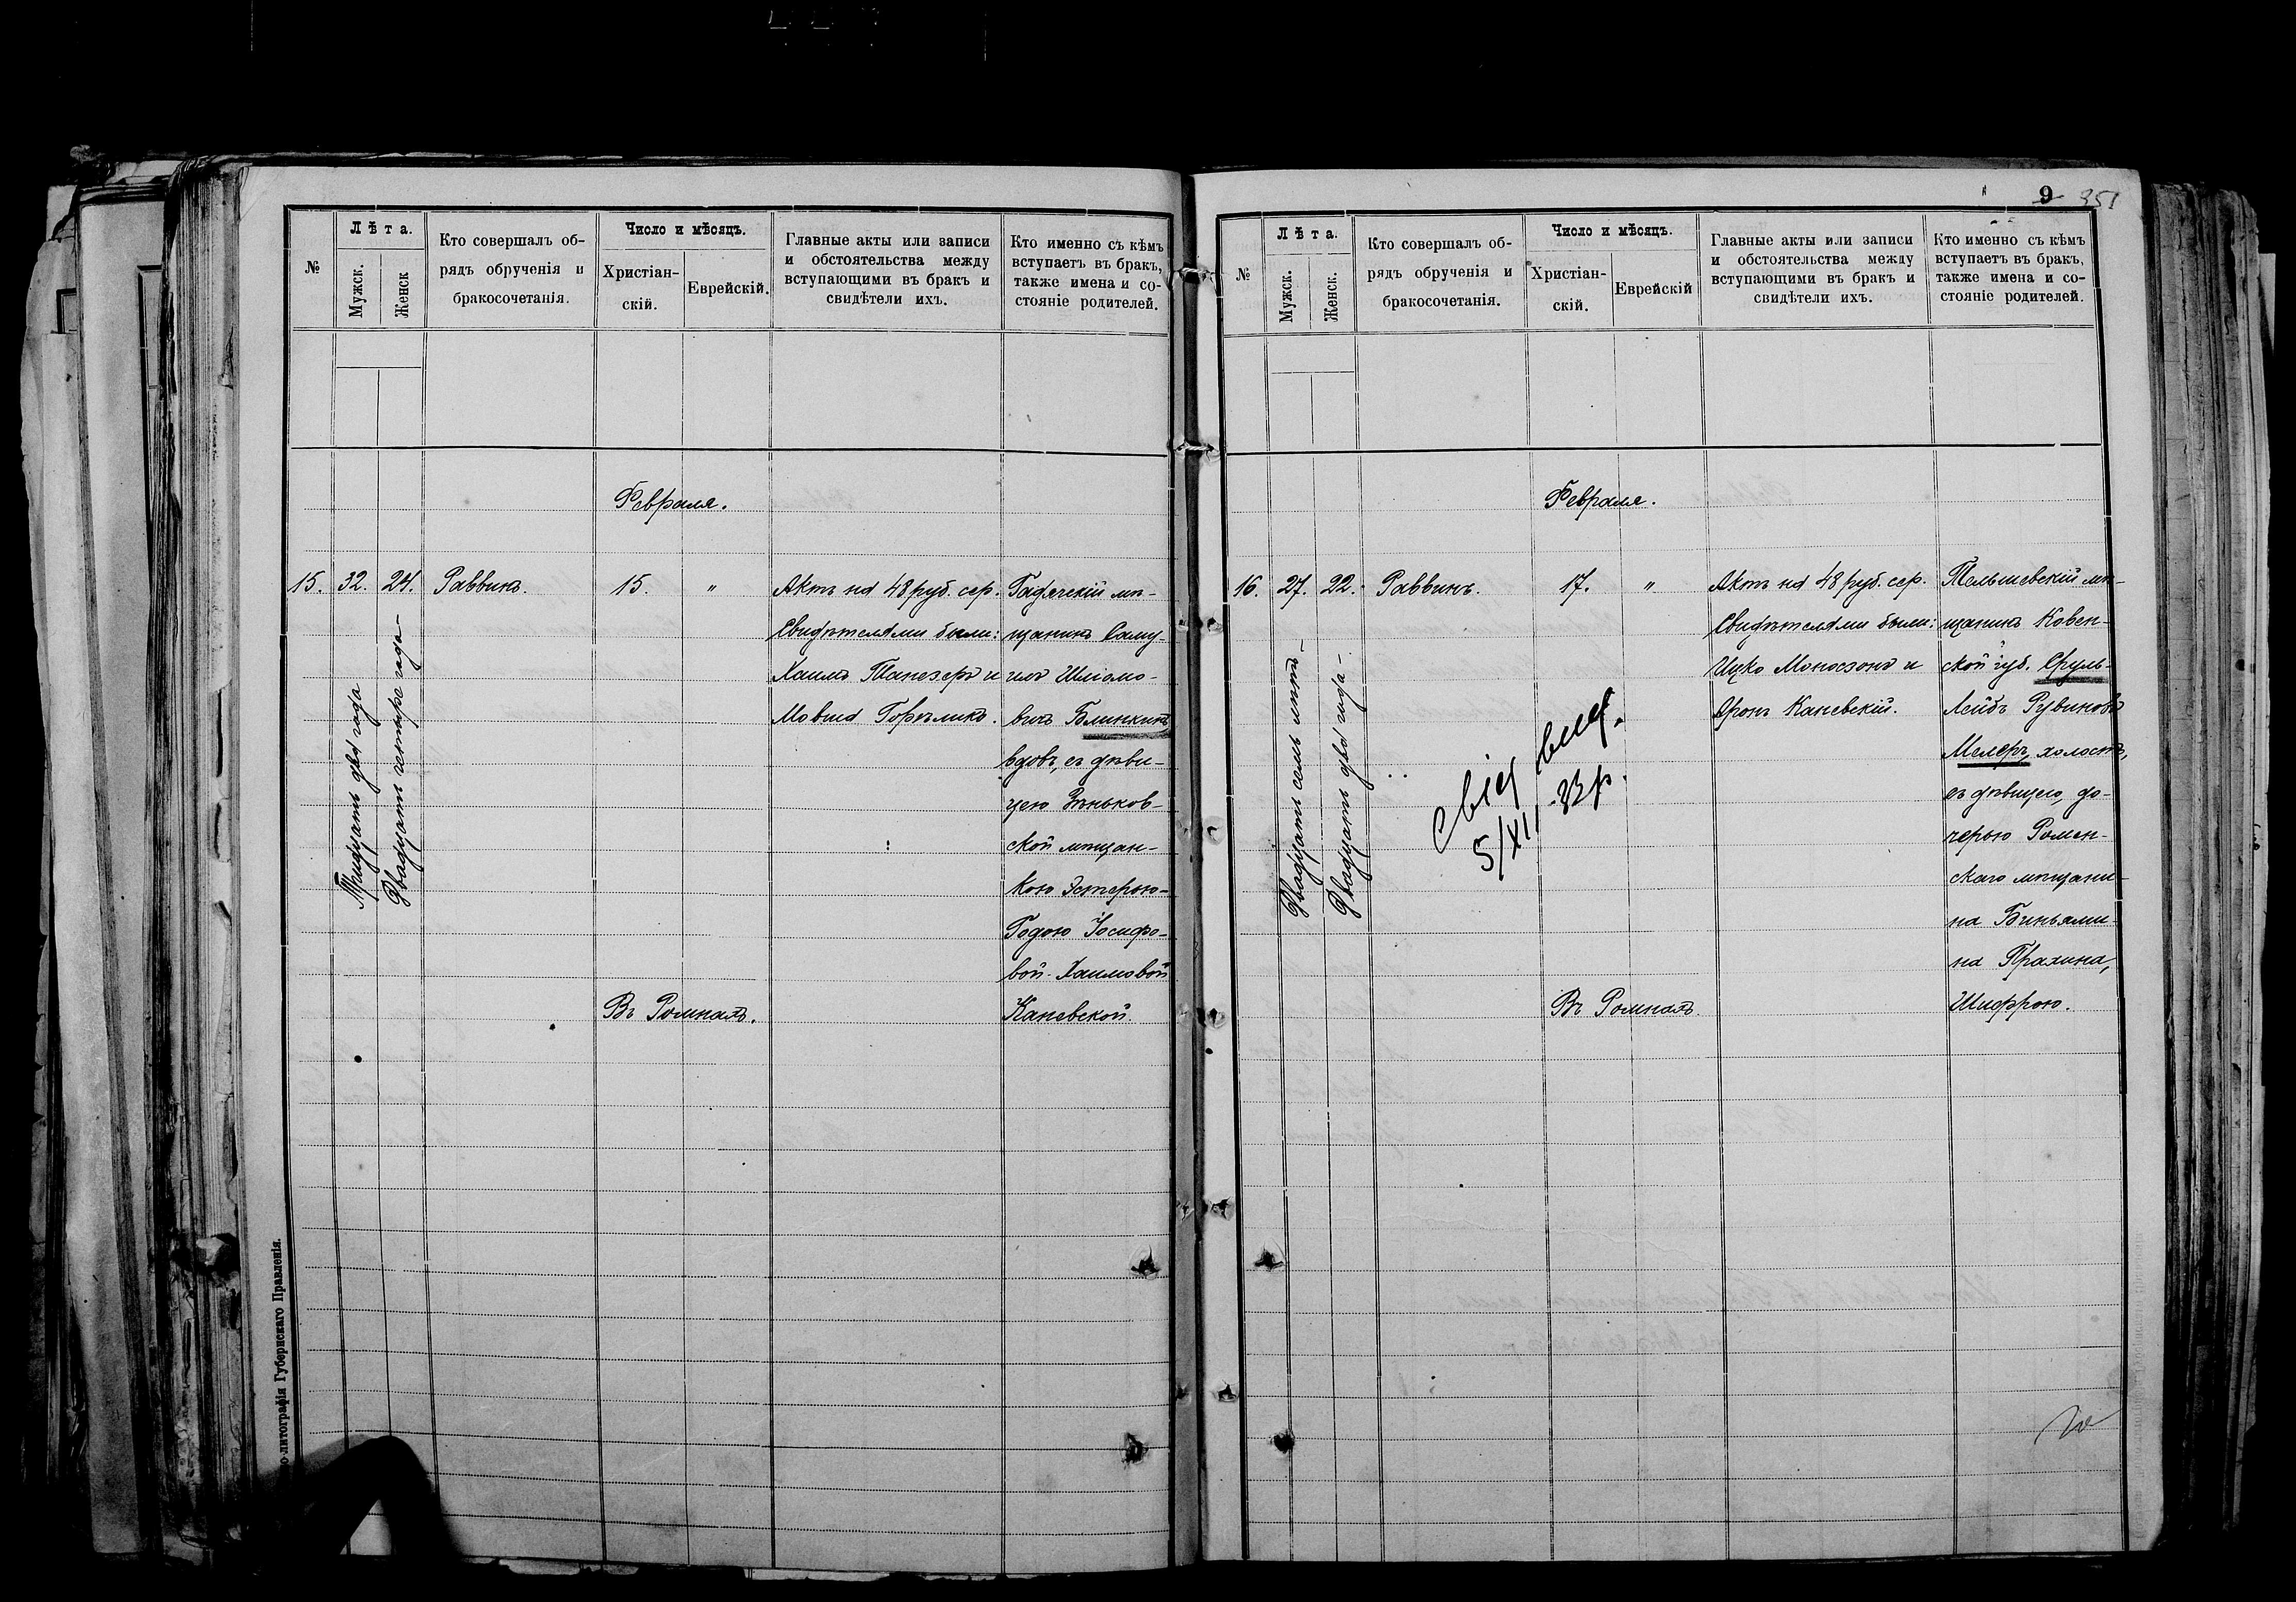 №
Лѣта.
Мужск.
Женск
Кто совершалъ об-
рядъ обрученія и
бракосочетанія.
Число и мѣсяцъ.
Христіан-
скій.
Еврейскій.
Главные акты или записи
и обстоятельства между
вступающими въ бракъ и
свидѣтели ихъ.
Кто именно съ кѣмъ
вступаетъ въ бракъ,
также имена и со-
стояніе родителей.
Февраля.
15.
32.
Тридцать два года
24.
Двадцать четыре года
Раввинъ.
15.
"
Въ Ромнахъ.
Актъ на 48 руб. сер.
Свидѣтелями были:
Хаимъ Танезеръ и
Мовша Горѣликъ.
Гадячскій мѣ-
щанинъ Саму-
илъ Шліомо-
вичъ Блинкинъ
вдовъ, съ дѣви-
цею Зѣньков-
ской мѣщан-
кою Эстерою-
Годою Іосифо-
вой-Хаимовой
Каневской.
о-литографія Губернскаго Правленія.
9
351
№
Лѣта.
Мужск.
Женск.
Кто совершалъ об-
рядъ обрученія и
бракосочетанія.
Число и мѣсяцъ.
Христіан-
скій.
Еврейскій
Главные акты или записи
и обстоятельства между
вступающими въ бракъ и
свидѣтели ихъ.
Кто именно съ кѣмъ
вступаетъ въ бракъ,
также имена и со-
стояніе родителей.
Февраля.
16.
27.
Двадцать семь лѣтъ
22.
Двадцать два года
Раввинъ.
17.
"
Въ Ромнахъ.
5/XI
Актъ на 48 руб. сер.
Свидѣтелями были:
Ицко Моносзонъ и
Аронъ Каневскій.
Тельшевскій мѣ-
щанинъ Ковен-
ской губ. Сруль-
Лейбъ Рувиновъ
Мелеръ, холостъ,
съ дѣвицею, до-
черью Ромен-
скаго мѣщани-
на Биньями-
на Прахина,
Шифрою.